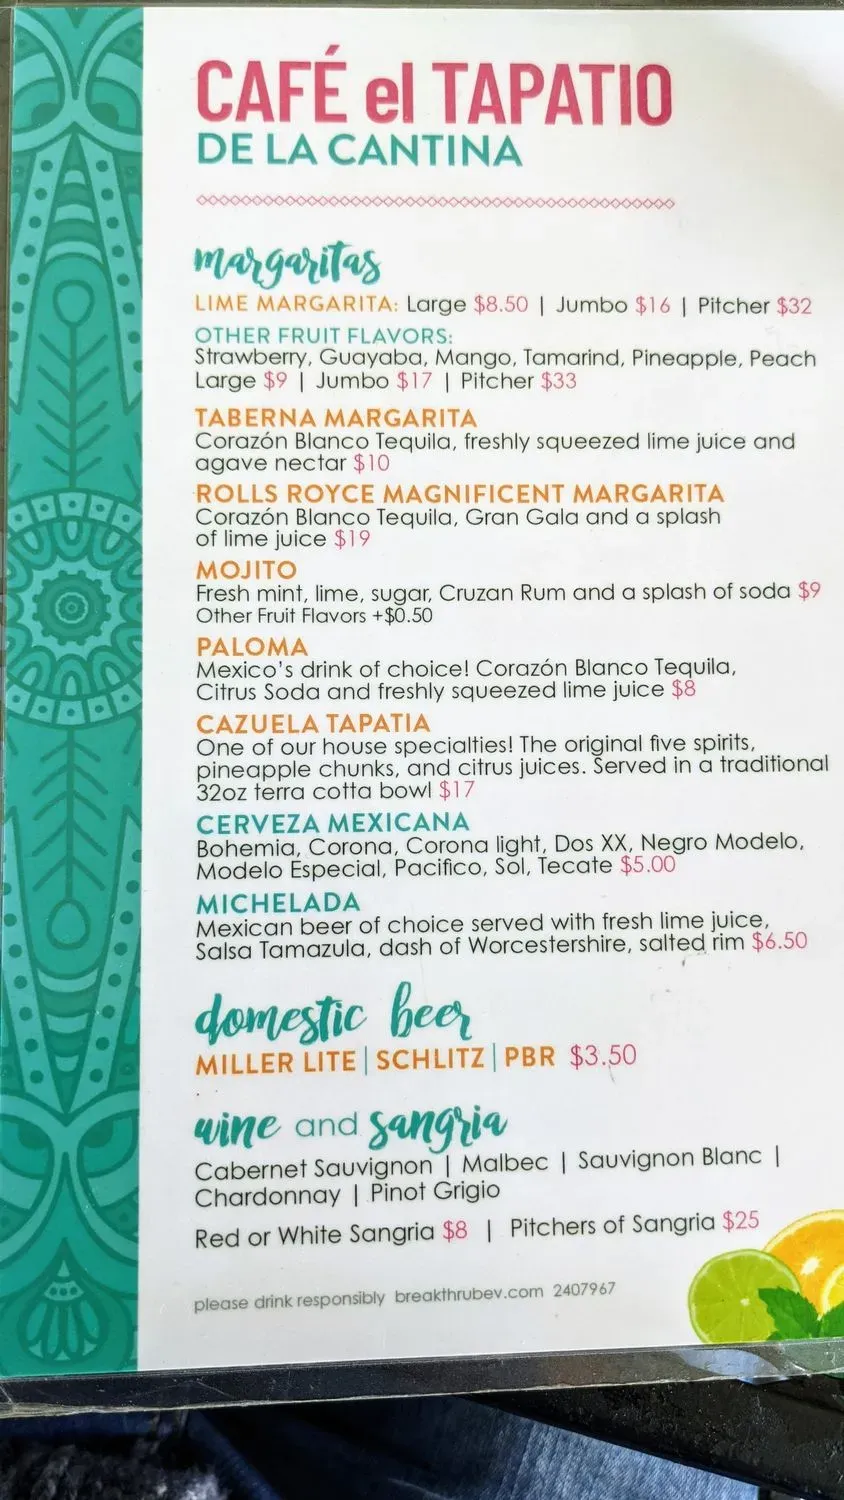 CAFÉ el TAPATIO
DE LA CANTINA
margaritas
LIME MARGARITA: Large $8.50 | Jumbo $16 | Pitcher $32
OTHER FRUIT FLAVORS:
Strawberry, Guayaba, Mango, Tamarind, Pineapple, Peach
Large $9 | Jumbo $17 | Pitcher $33
TABERNA MARGARITA
Corazón Blanco Tequila, freshly squeezed lime juice and
agave nectar $10
ROLLS ROYCE MAGNIFICENT MARGARITA
Corazón Blanco Tequila, Gran Gala and a splash
of lime juice $19
MOJITO
Fresh mint, lime, sugar, Cruzan Rum and a splash of soda $9
Other Fruit Flavors +$0.50
PALOMA
Mexico's drink of choice! Corazón Blanco Tequila,
Citrus Soda and freshly squeezed lime juice $8
CAZUELA TAPATIA
One of our house specialties! The original five spirits,
pineapple chunks, and citrus juices. Served in a traditional
32oz terra cotta bowl $17
CERVEZA MEXICANA
Bohemia, Corona, Corona light, Dos XX, Negro Modelo,
Modelo Especial, Pacifico, Sol, Tecate $5.00
MICHELADA
Mexican beer of choice served with fresh lime juice,
Salsa Tamazula, dash of Worcestershire, salted rim $6.50
domestic beer
MILLER LITE | SCHLITZ | PBR $3.50
wine and sangria
Cabernet Sauvignon | Malbec | Sauvignon Blanc |
Chardonnay | Pinot Grigio
Red or White Sangria $8 | Pitchers of Sangria $25
please drink responsibly breakthrubev.com 2407967